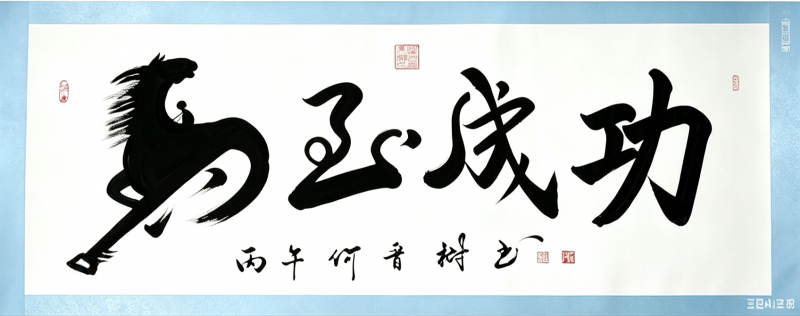 马到成功
丙午何晋树书